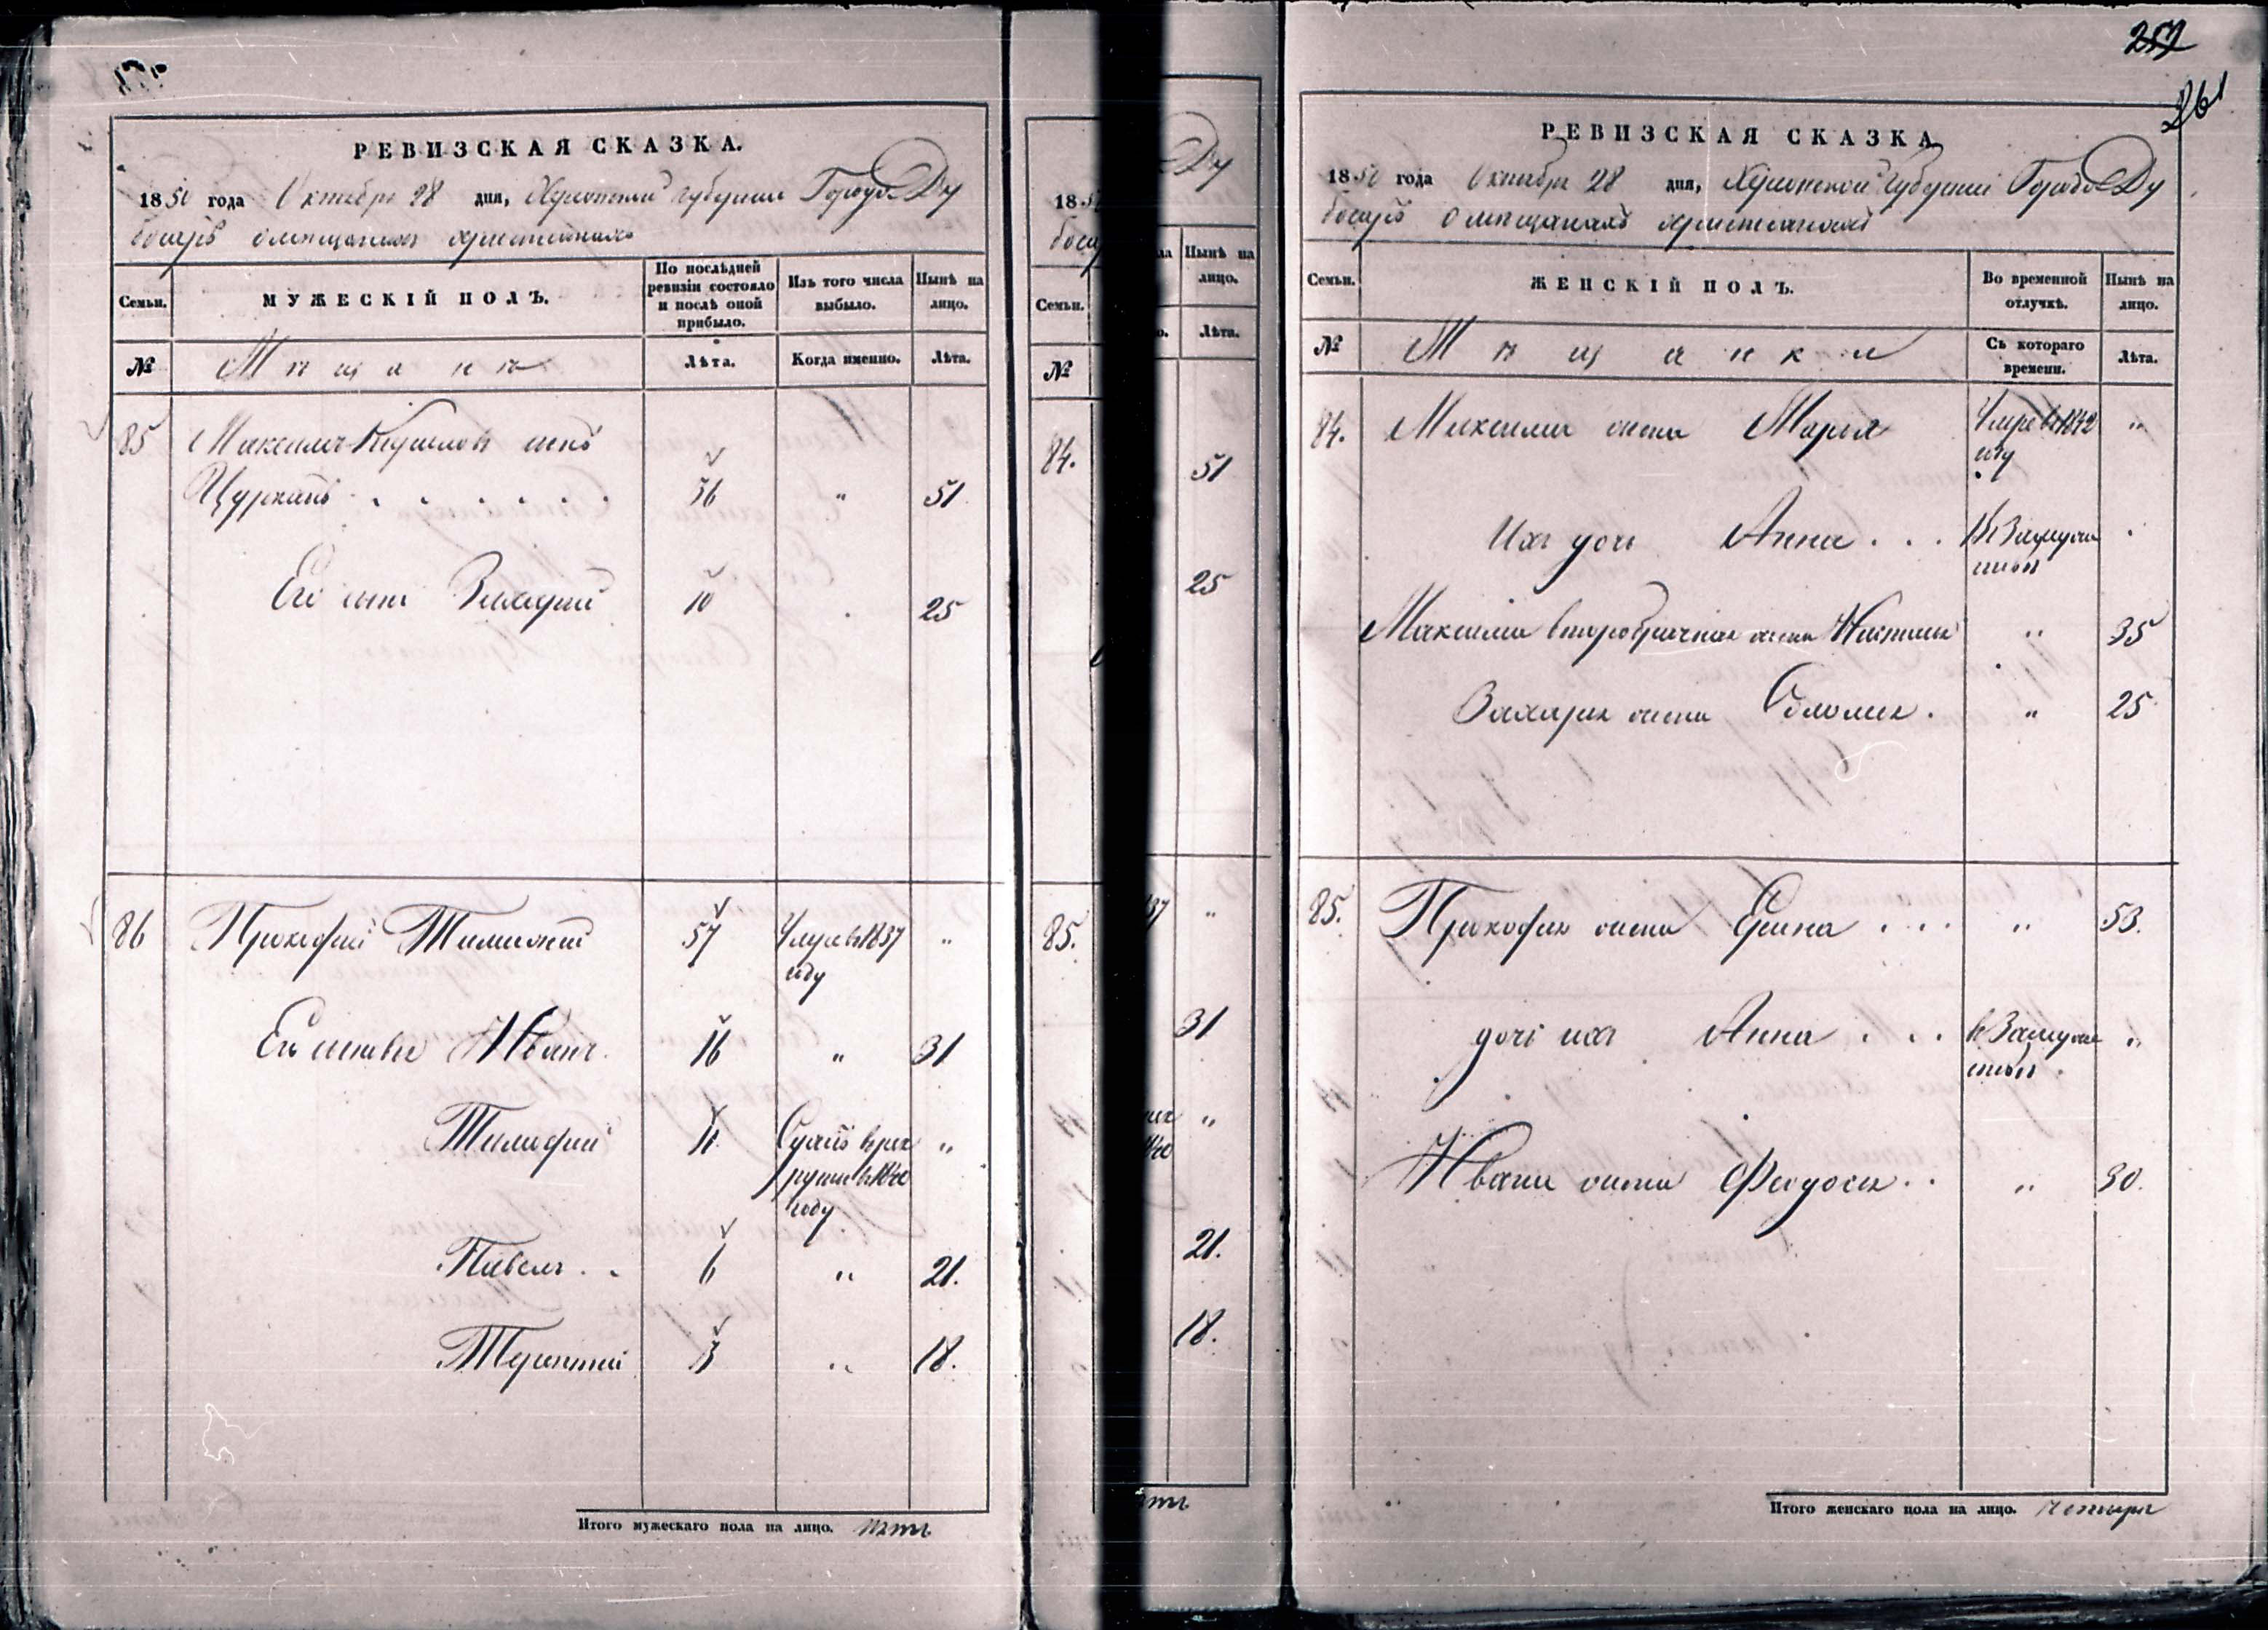 РЕВИЗСКАЯ СКАЗКА.
1850 года Октября 28 дня, Херсонской Губернии Города Ду
босаръ о мещанахъ христианахъ
Семьи.
МУЖЕСКІЙ ПОЛЪ.
По послѣдней
ревизіи состояло
и послѣ оной
прибыло.
Изъ того числа
выбыло.
Нынѣ на
лицо.
№
Мѣщанѣ
Лѣта.
Когда именно.
Лѣта.
85 Максимъ Кириловъ сынъ
Цурканъ 36 " 51
Его сынъ Захарий 10 25
86 Прокофий Тимофеий 57 Умре въ 1837 "
году
Его сыновья Иванъ 16 " 31
Тимофий 11 Сданъ в рек "
руты в 1840
году
Павелъ 6 " 21.
Терентий 3 " 18.
Итого мужескаго пола на лицо. пять
185
Ду
боса
Семьи.
Нынѣ на
лицо.
№
Лѣта.
84.
51
25
85.
37 "
31
"
1840
21.
18.
ять
257
261
РЕВИЗСКАЯ СКАЗКА
1850 года Октября 28 дня, Херсонской Губернии Города Ду
босаръ о мещанахъ христианахъ
Семьи.
ЖЕНСКІЙ ПОЛЪ.
Во временной
отлучкѣ.
Нынѣ на
лицо.
№
Мѣщанки
Съ котораго
времени.
Лѣта.
84. Максима жена Марья Умре в 1842 "
году
Ихъ дочь Анна В Замуже
ствѣ
Максима второбрачная жена Настасья " 35
Захария жена Соломия " 25
85. Прокофия жена Ирина " 53.
дочь ихъ Анна в Замуже "
ствѣ
Ивана жена Феодосья " 30.
Итого женскаго пола на лицо. четыре